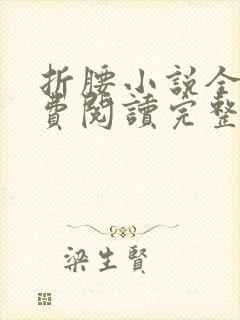 折腰小說全
費閱讀完整
梁生賢